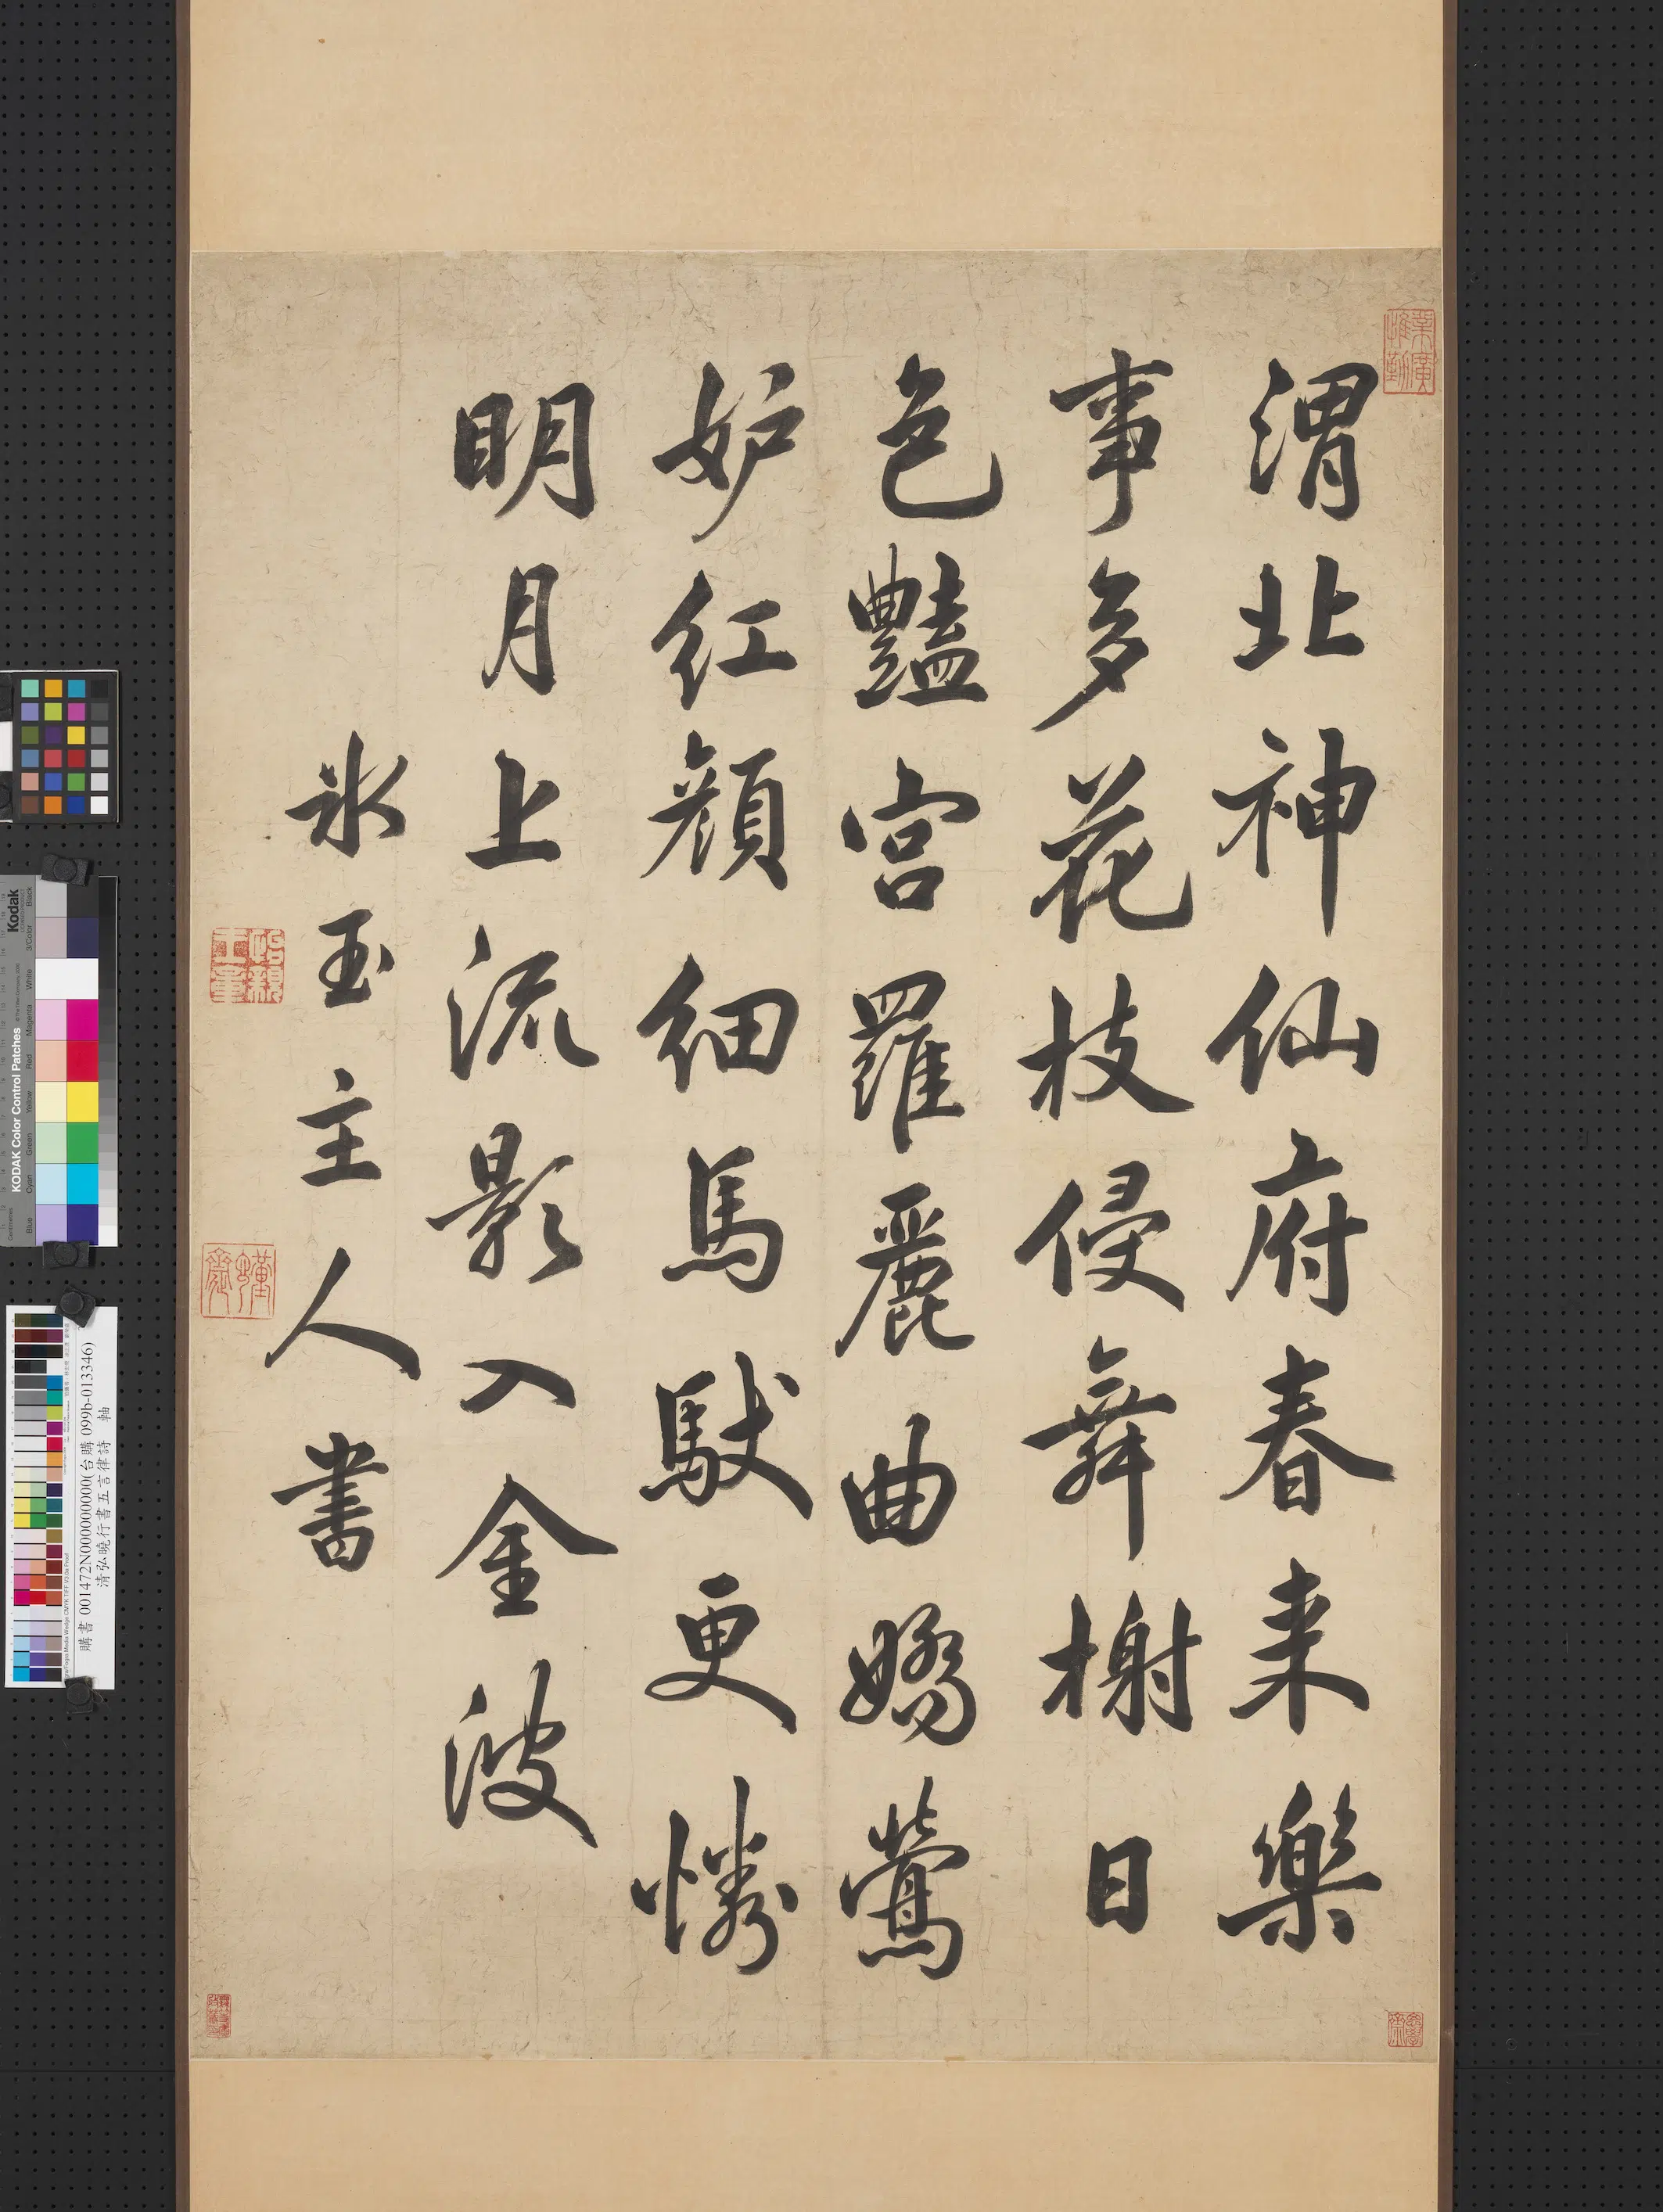 渭北神仙府春来樂
事多花枝侵舞榭日
色豔宫羅麗曲嬌鶯
妒紅顔細馬馱更憐
明月上流影入金波
冰玉主人書
怡親王寶
Kodak
KODAK Color Control Patches
Blue Cyan Green Yellow Red Magenta White 3/Color Black
購書 001472N000000000(台購 099b-013346)
清弘曉行書五言律詩 軸